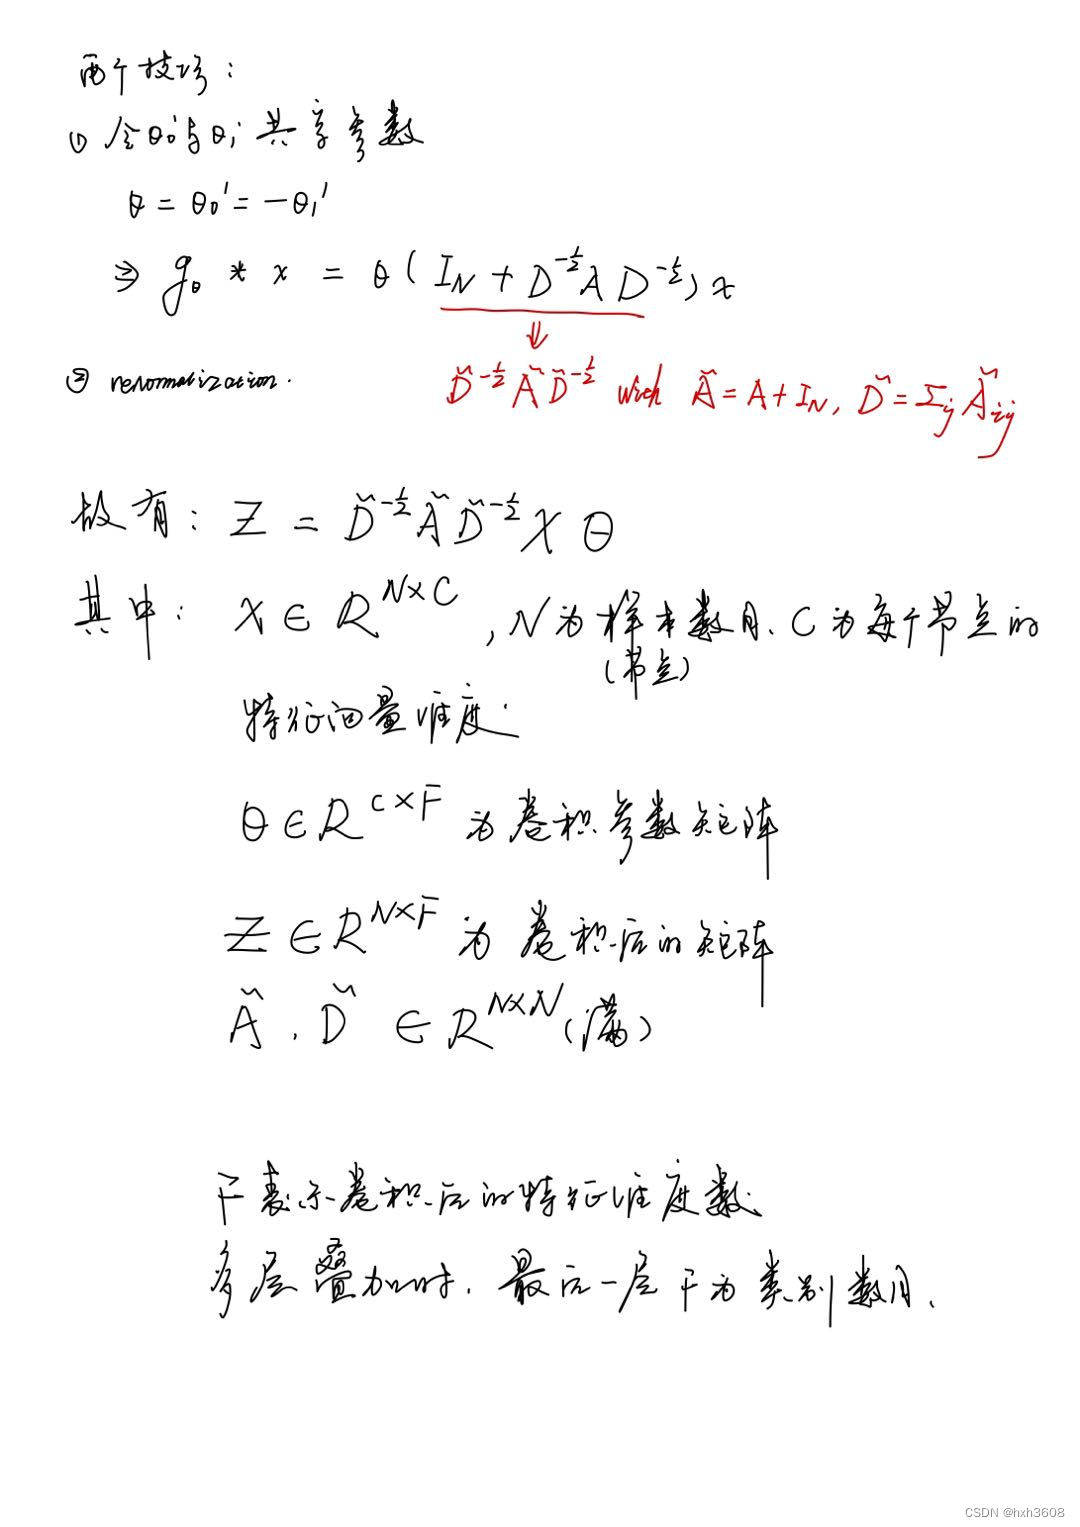 两个技巧:
① 令θ₀'与θ₁'共享参数
θ = θ₀' = -θ₁'
⇒ g_θ * x = θ( I_N + D^{-1/2} A D^{-1/2} ) x
⇓
② renormalization.
D̃^{-1/2} Ã D̃^{-1/2} with Ã = A + I_N, D̃ = Σ_j Ã_{ij}
故有: Z = D̃^{-1/2} Ã D̃^{-1/2} X Θ
其中: X ∈ R^{N×C}, N为样本数目、C为每个节点的
(节点)
特征向量维度.
Θ ∈ R^{C×F} 为卷积参数矩阵
Z ∈ R^{N×F} 为卷积后的矩阵
Ã , D̃ ∈ R^{N×N} (满)
F表示卷积后的特征维度数.
多层叠加时, 最后一层F为类别数目.
CSDN @hxh3608